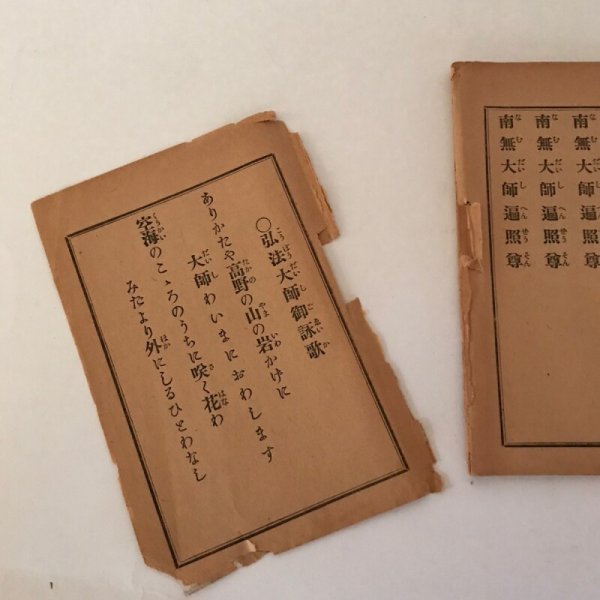 〇弘法大師御詠歌
ありかたや高野の山の岩かけに
大師わいまにおわします
空海のこゝろのうちに咲く花わ
みたより外にしるひとわなし
南無大師遍照尊
南無大師遍照尊
南無大師遍照尊